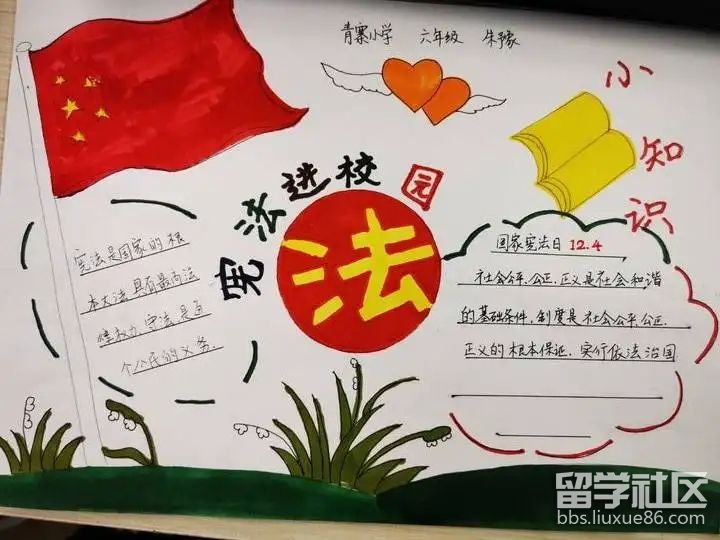 青寨小学 六年级 朱豫
小知识
宪法进校园
法
宪法是国家的根
本大法,具有最高法
律权力,守法是每
个公民的义务.
国家宪法日12.4
社会公平、公正、正义是社会和谐
的基础条件,制度是社会公平、公正、
正义的根本保证.实行依法治国
留学社区
bbs.liuxue86.com